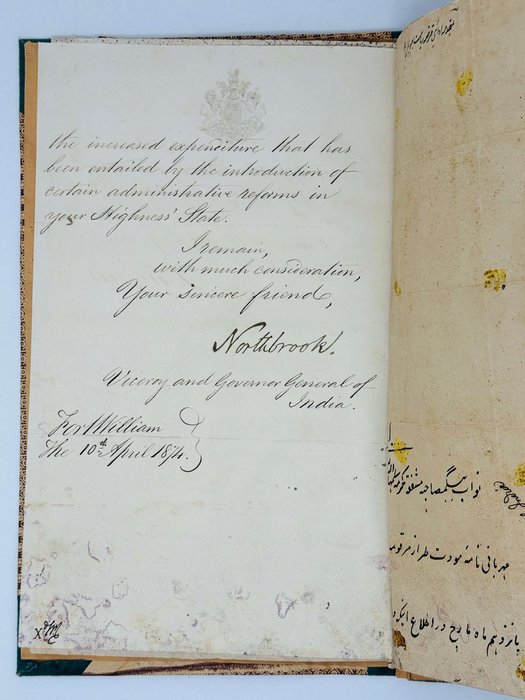 the increased expenditure that has
been entailed by the introduction of
certain administrative reforms in
your Highness' State.
I remain,
with much consideration,
Your sincere friend,
Northbrook.
Viceroy and Governor General of
India.
Fort William
The 10th April 1874.
نواب بیگم صاحبه مشفقه
مهربانی نامهٔ مودت طراز مرقومه
پانزدهم ماه مارچ در اطلاع اینکه